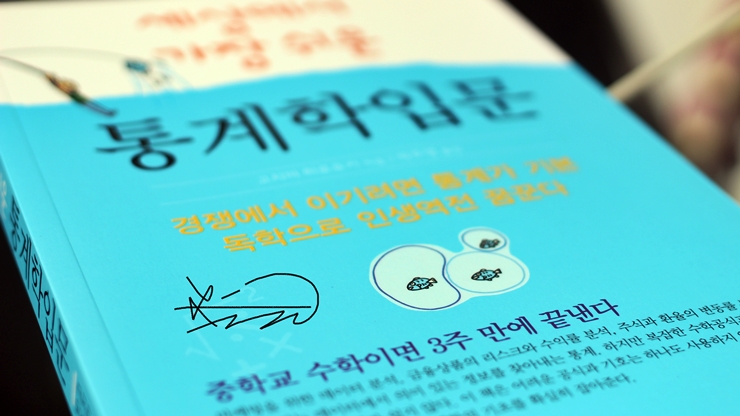 세상에서
가장 쉬운
통계학입문
경쟁에서 이기려면 통계가 기본
독학으로 인생역전 꿈꾼다
통계학입문
중학교 수학이면 3주 만에 끝낸다
데이터 분석, 금융상품의 리스크와 수익률 분석, 주식과 환율의 변동률
데이터에서 의미 있는 정보를 찾아내는 통계. 하지만 복잡한 수학공식과
않다. 이 책은 어려운 공식과 기호는 하나도 사용하지
기초를 확실히 잡아준다.